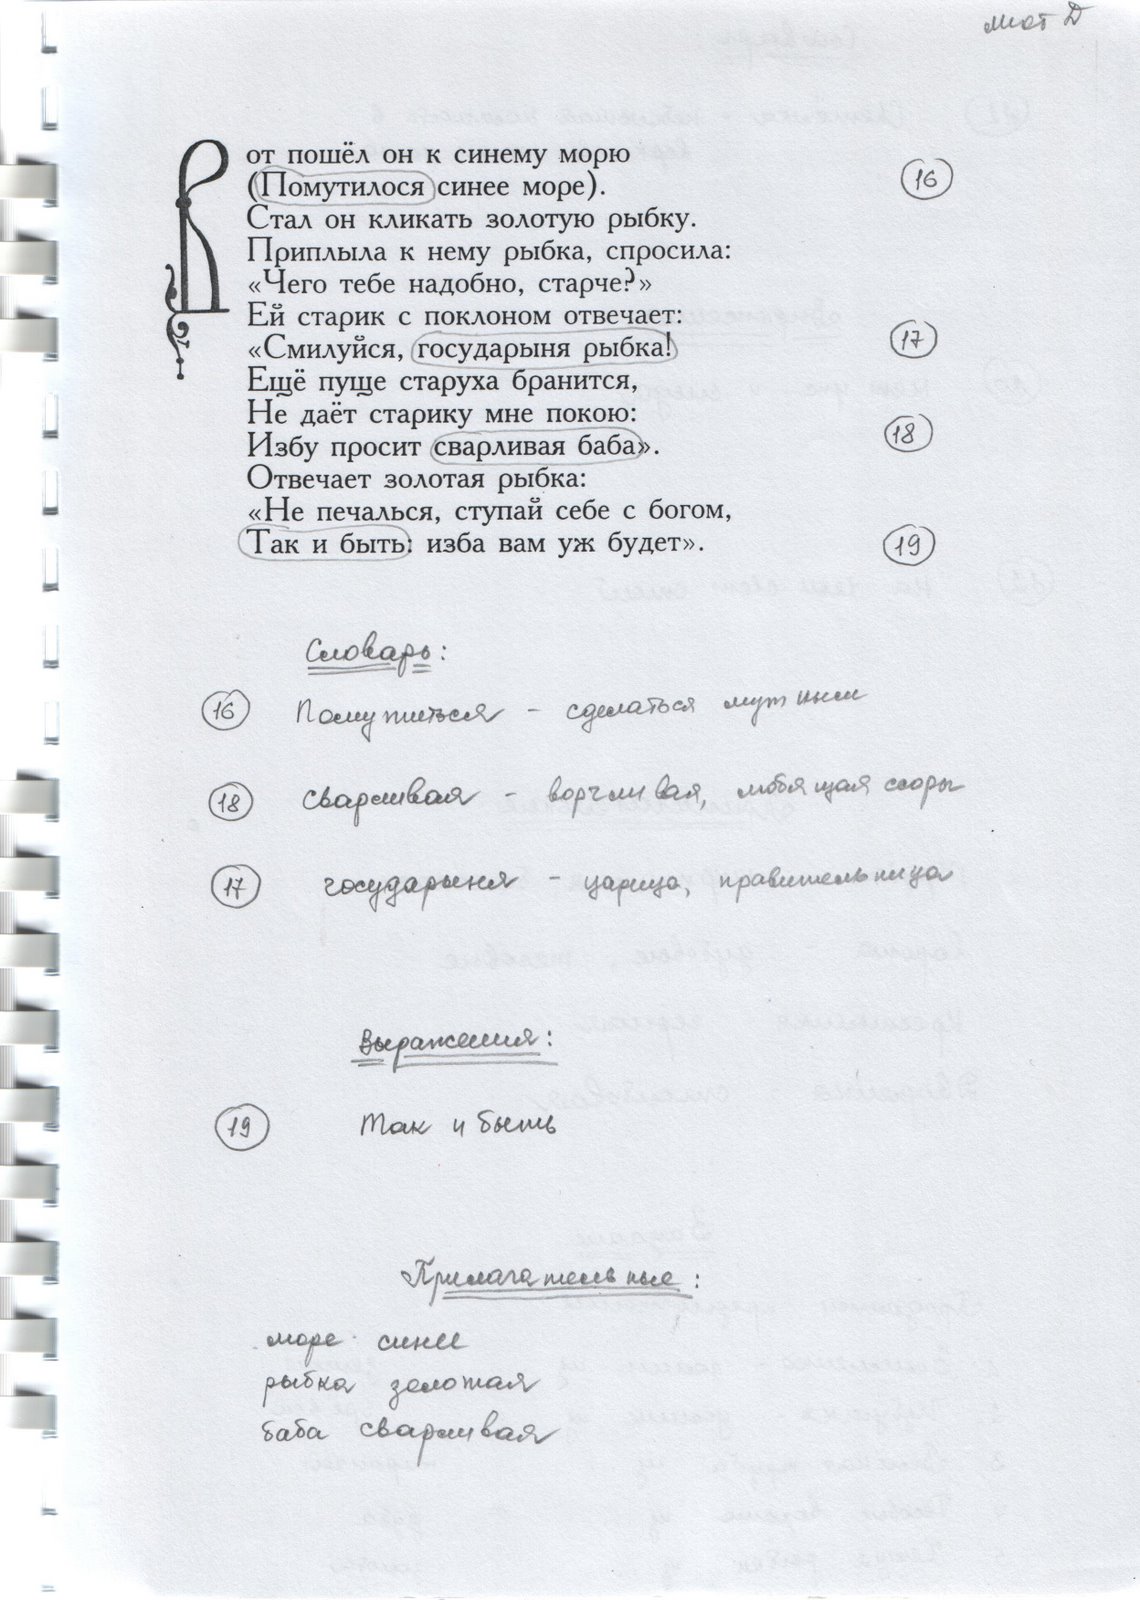 лист Д
Вот пошёл он к синему морю
(Помутилося синее море).
16
Стал он кликать золотую рыбку.
Приплыла к нему рыбка, спросила:
«Чего тебе надобно, старче?»
Ей старик с поклоном отвечает:
«Смилуйся, государыня рыбка!
17
Ещё пуще старуха бранится,
Не даёт старику мне покою:
Избу просит сварливая баба».
18
Отвечает золотая рыбка:
«Не печалься, ступай себе с богом,
Так и быть: изба вам уж будет».
19
Словарь:
16 Помутиться - сделаться мутным
18 сварливая - ворчливая, любящая ссоры
17 государыня - царица, правительница
Выражения:
19 Так и быть
Прилагательные:
море синее
рыбка золотая
баба сварливая